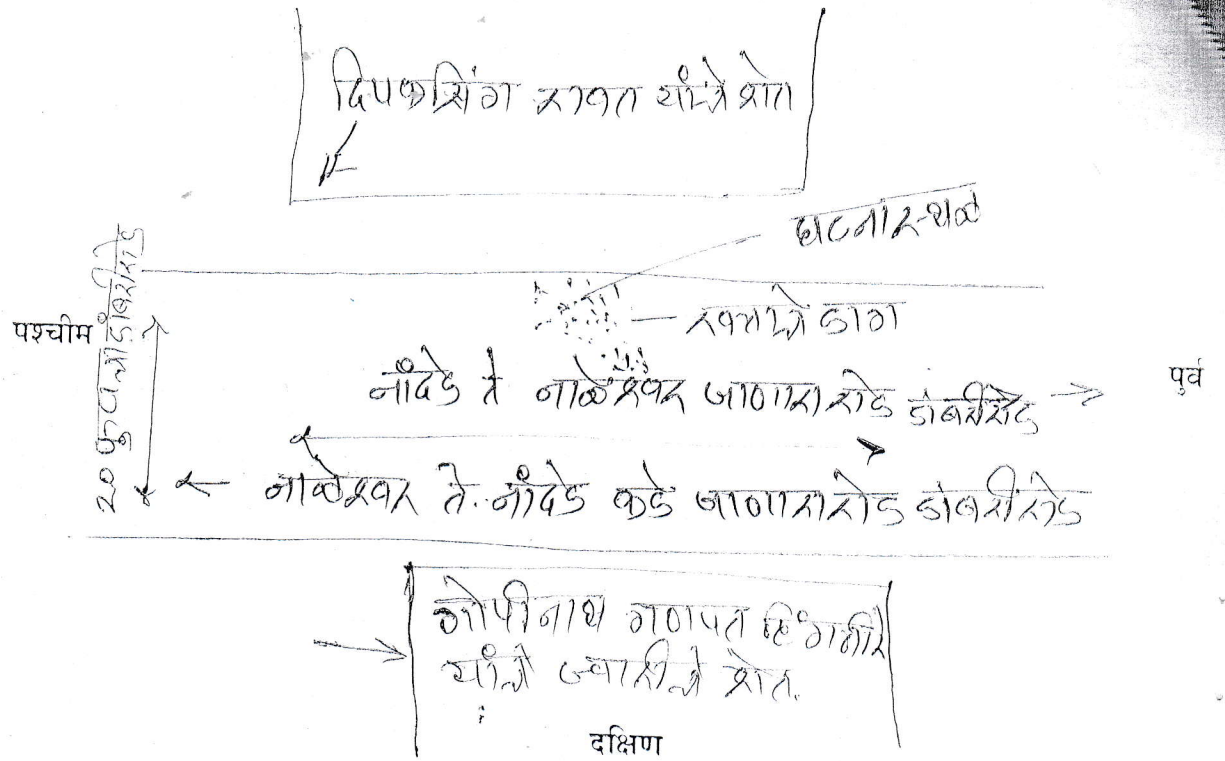 दिपकसिंग रावत यांचे शेत
घटनास्थळ
रक्ताचे डाग
पश्चीम
20 फुटाचा डांबरीरोड
नांदेड ते नाळेश्वर जाणारा रोड डांबरीरोड
पुर्व
नाळेश्वर ते. नांदेड कडे जाणारा रोड डांबरीरोड
गोपीनाथ गणपत हिंगमीरे
यांचे ज्वारीचे शेत.
दक्षिण